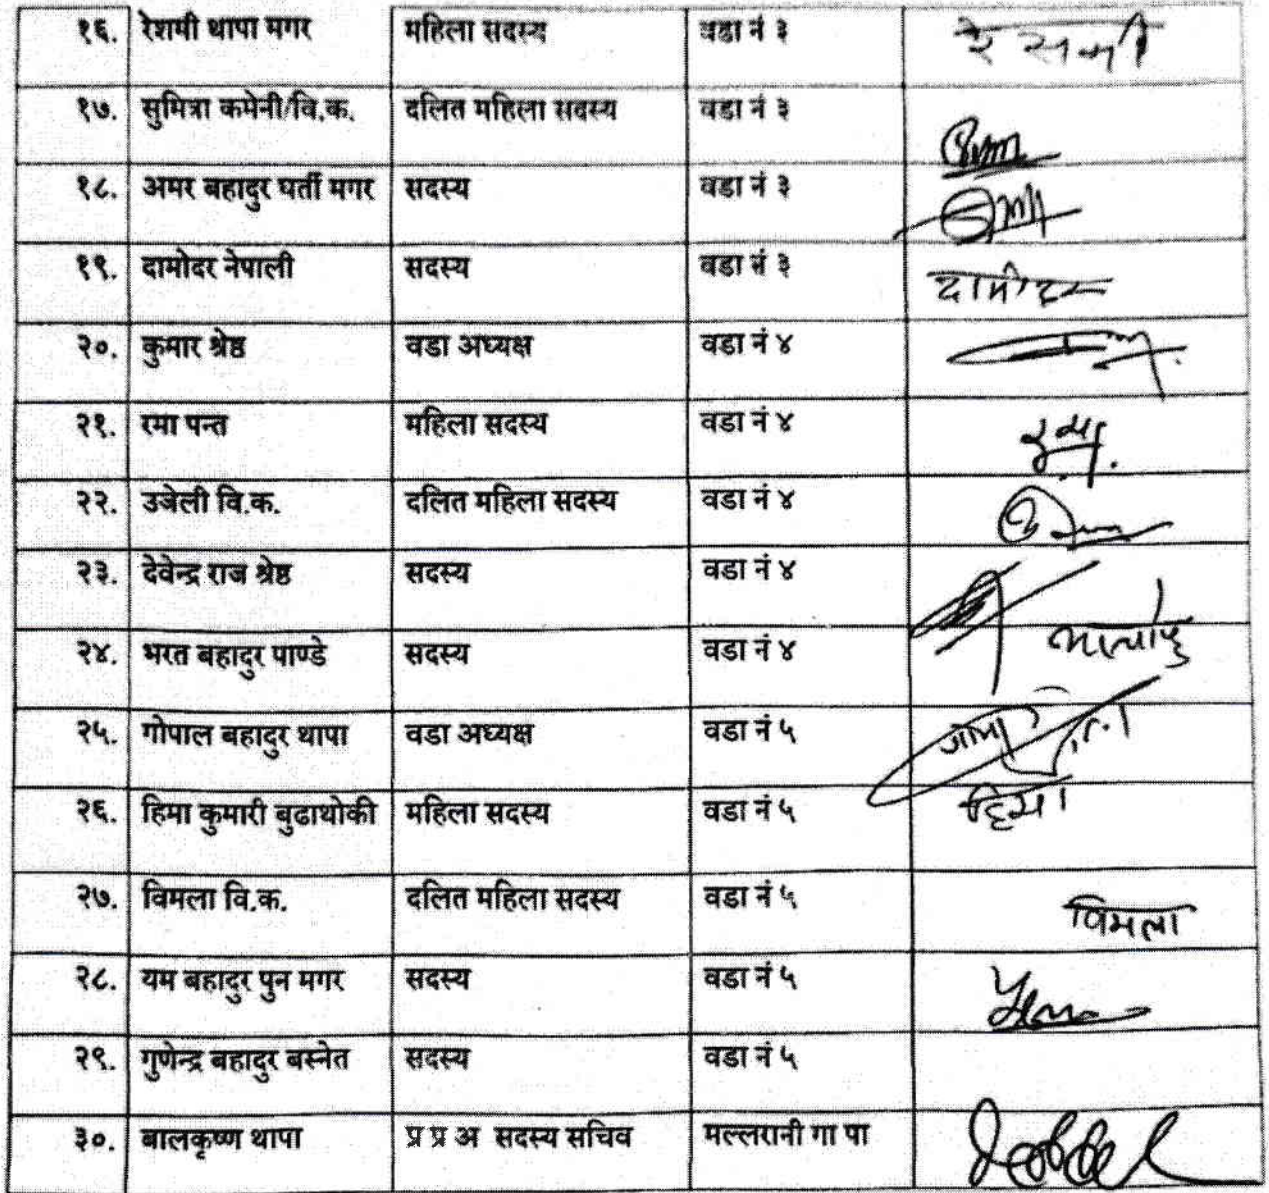 १६. रेशमी थापा मगर महिला सदस्य वडा नं ३ रेसमी
१७. सुमित्रा कमेनी/वि.क. दलित महिला सदस्य वडा नं ३
१८. अमर बहादुर घर्ती मगर सदस्य वडा नं ३
१९. दामोदर नेपाली सदस्य वडा नं ३ दामोदर
२०. कुमार श्रेष्ठ वडा अध्यक्ष वडा नं ४
२१. रमा पन्त महिला सदस्य वडा नं ४ रमा
२२. उजेली वि.क. दलित महिला सदस्य वडा नं ४
२३. देवेन्द्र राज श्रेष्ठ सदस्य वडा नं ४
२४. भरत बहादुर पाण्डे सदस्य वडा नं ४
२५. गोपाल बहादुर थापा वडा अध्यक्ष वडा नं ५
२६. हिमा कुमारी बुढाथोकी महिला सदस्य वडा नं ५ हिमा
२७. विमला वि.क. दलित महिला सदस्य वडा नं ५ विमला
२८. यम बहादुर पुन मगर सदस्य वडा नं ५
२९. गुणेन्द्र बहादुर बस्नेत सदस्य वडा नं ५
३०. बालकृष्ण थापा प्र प्र अ सदस्य सचिव मल्लरानी गा पा